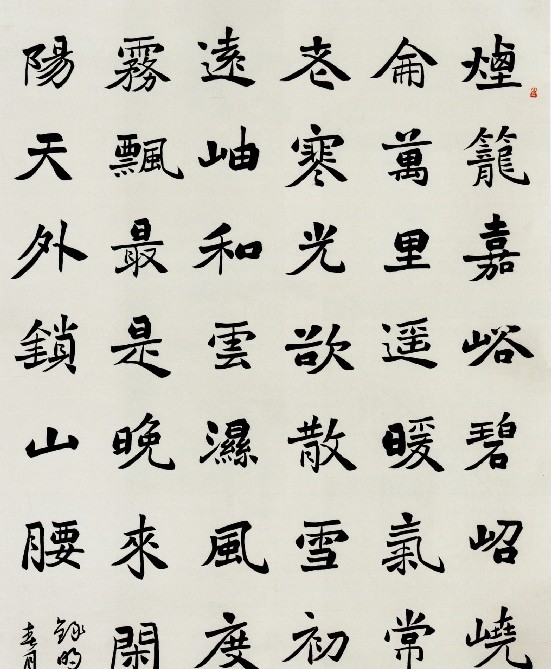 煙籠嘉峪碧岹嶢
侖萬里遥暖氣常
老寒光欲散雪初
遠岫和雲濕風度
霧飄最是晚來閑
陽天外鎖山腰
録明